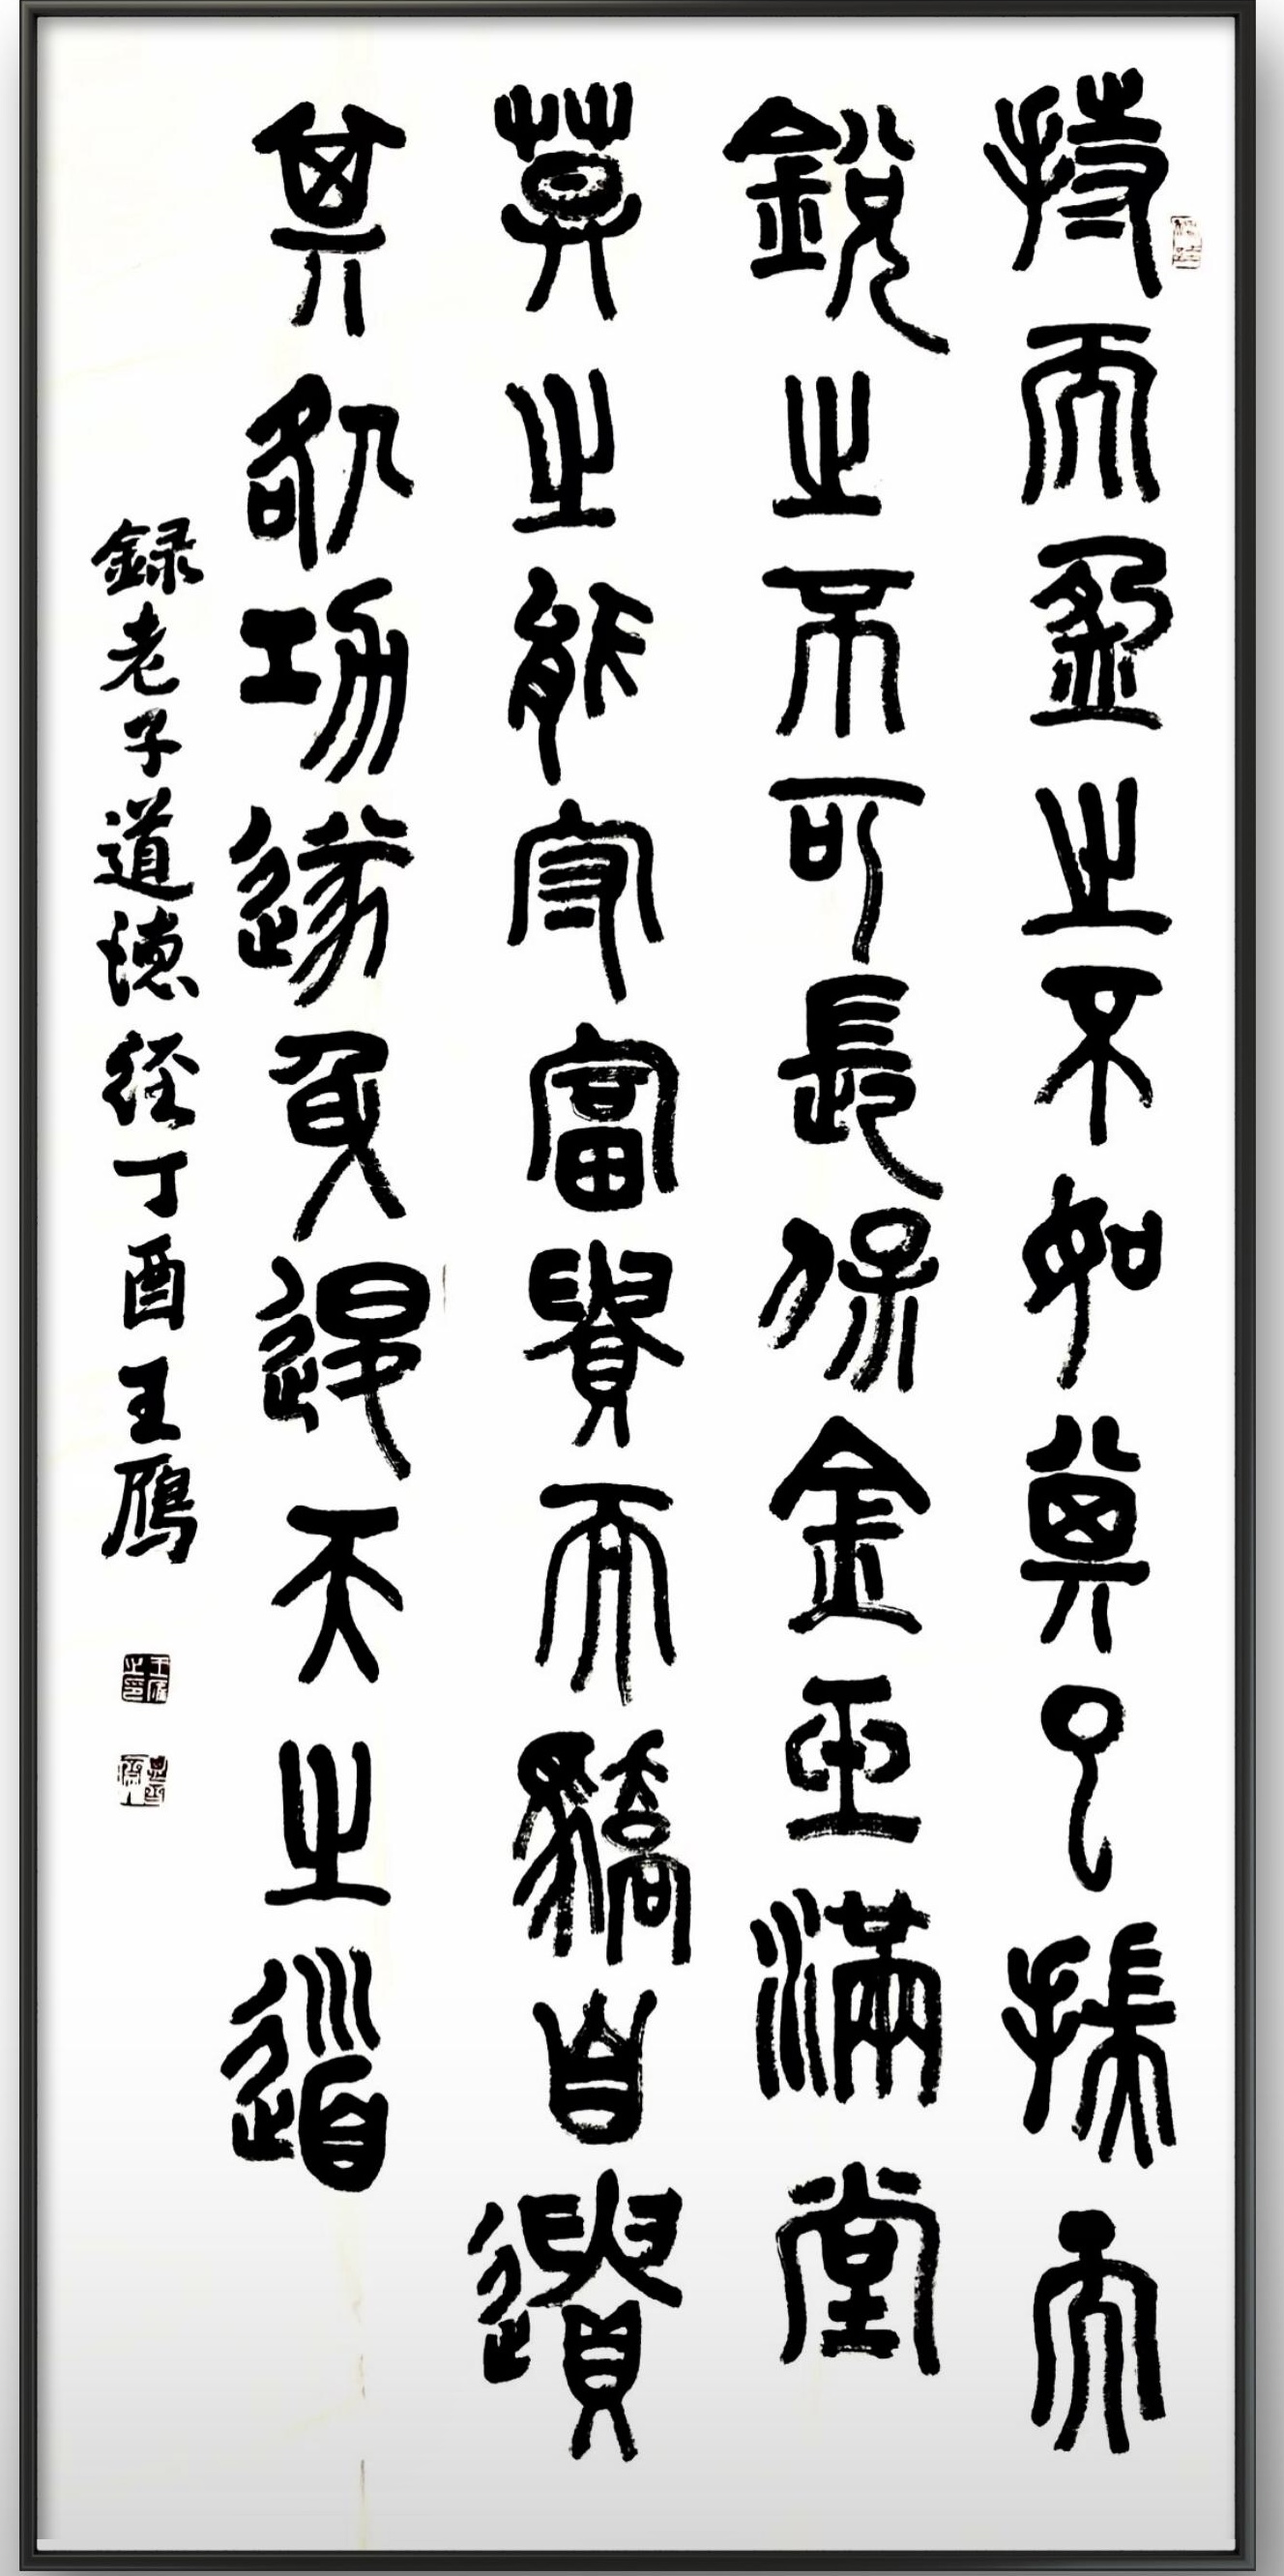 持而盈之不如其已揣而
銳之不可長保金玉滿堂
莫之能守富貴而驕自遺
其咎功遂身退天之道
録老子道德经丁酉王鴈